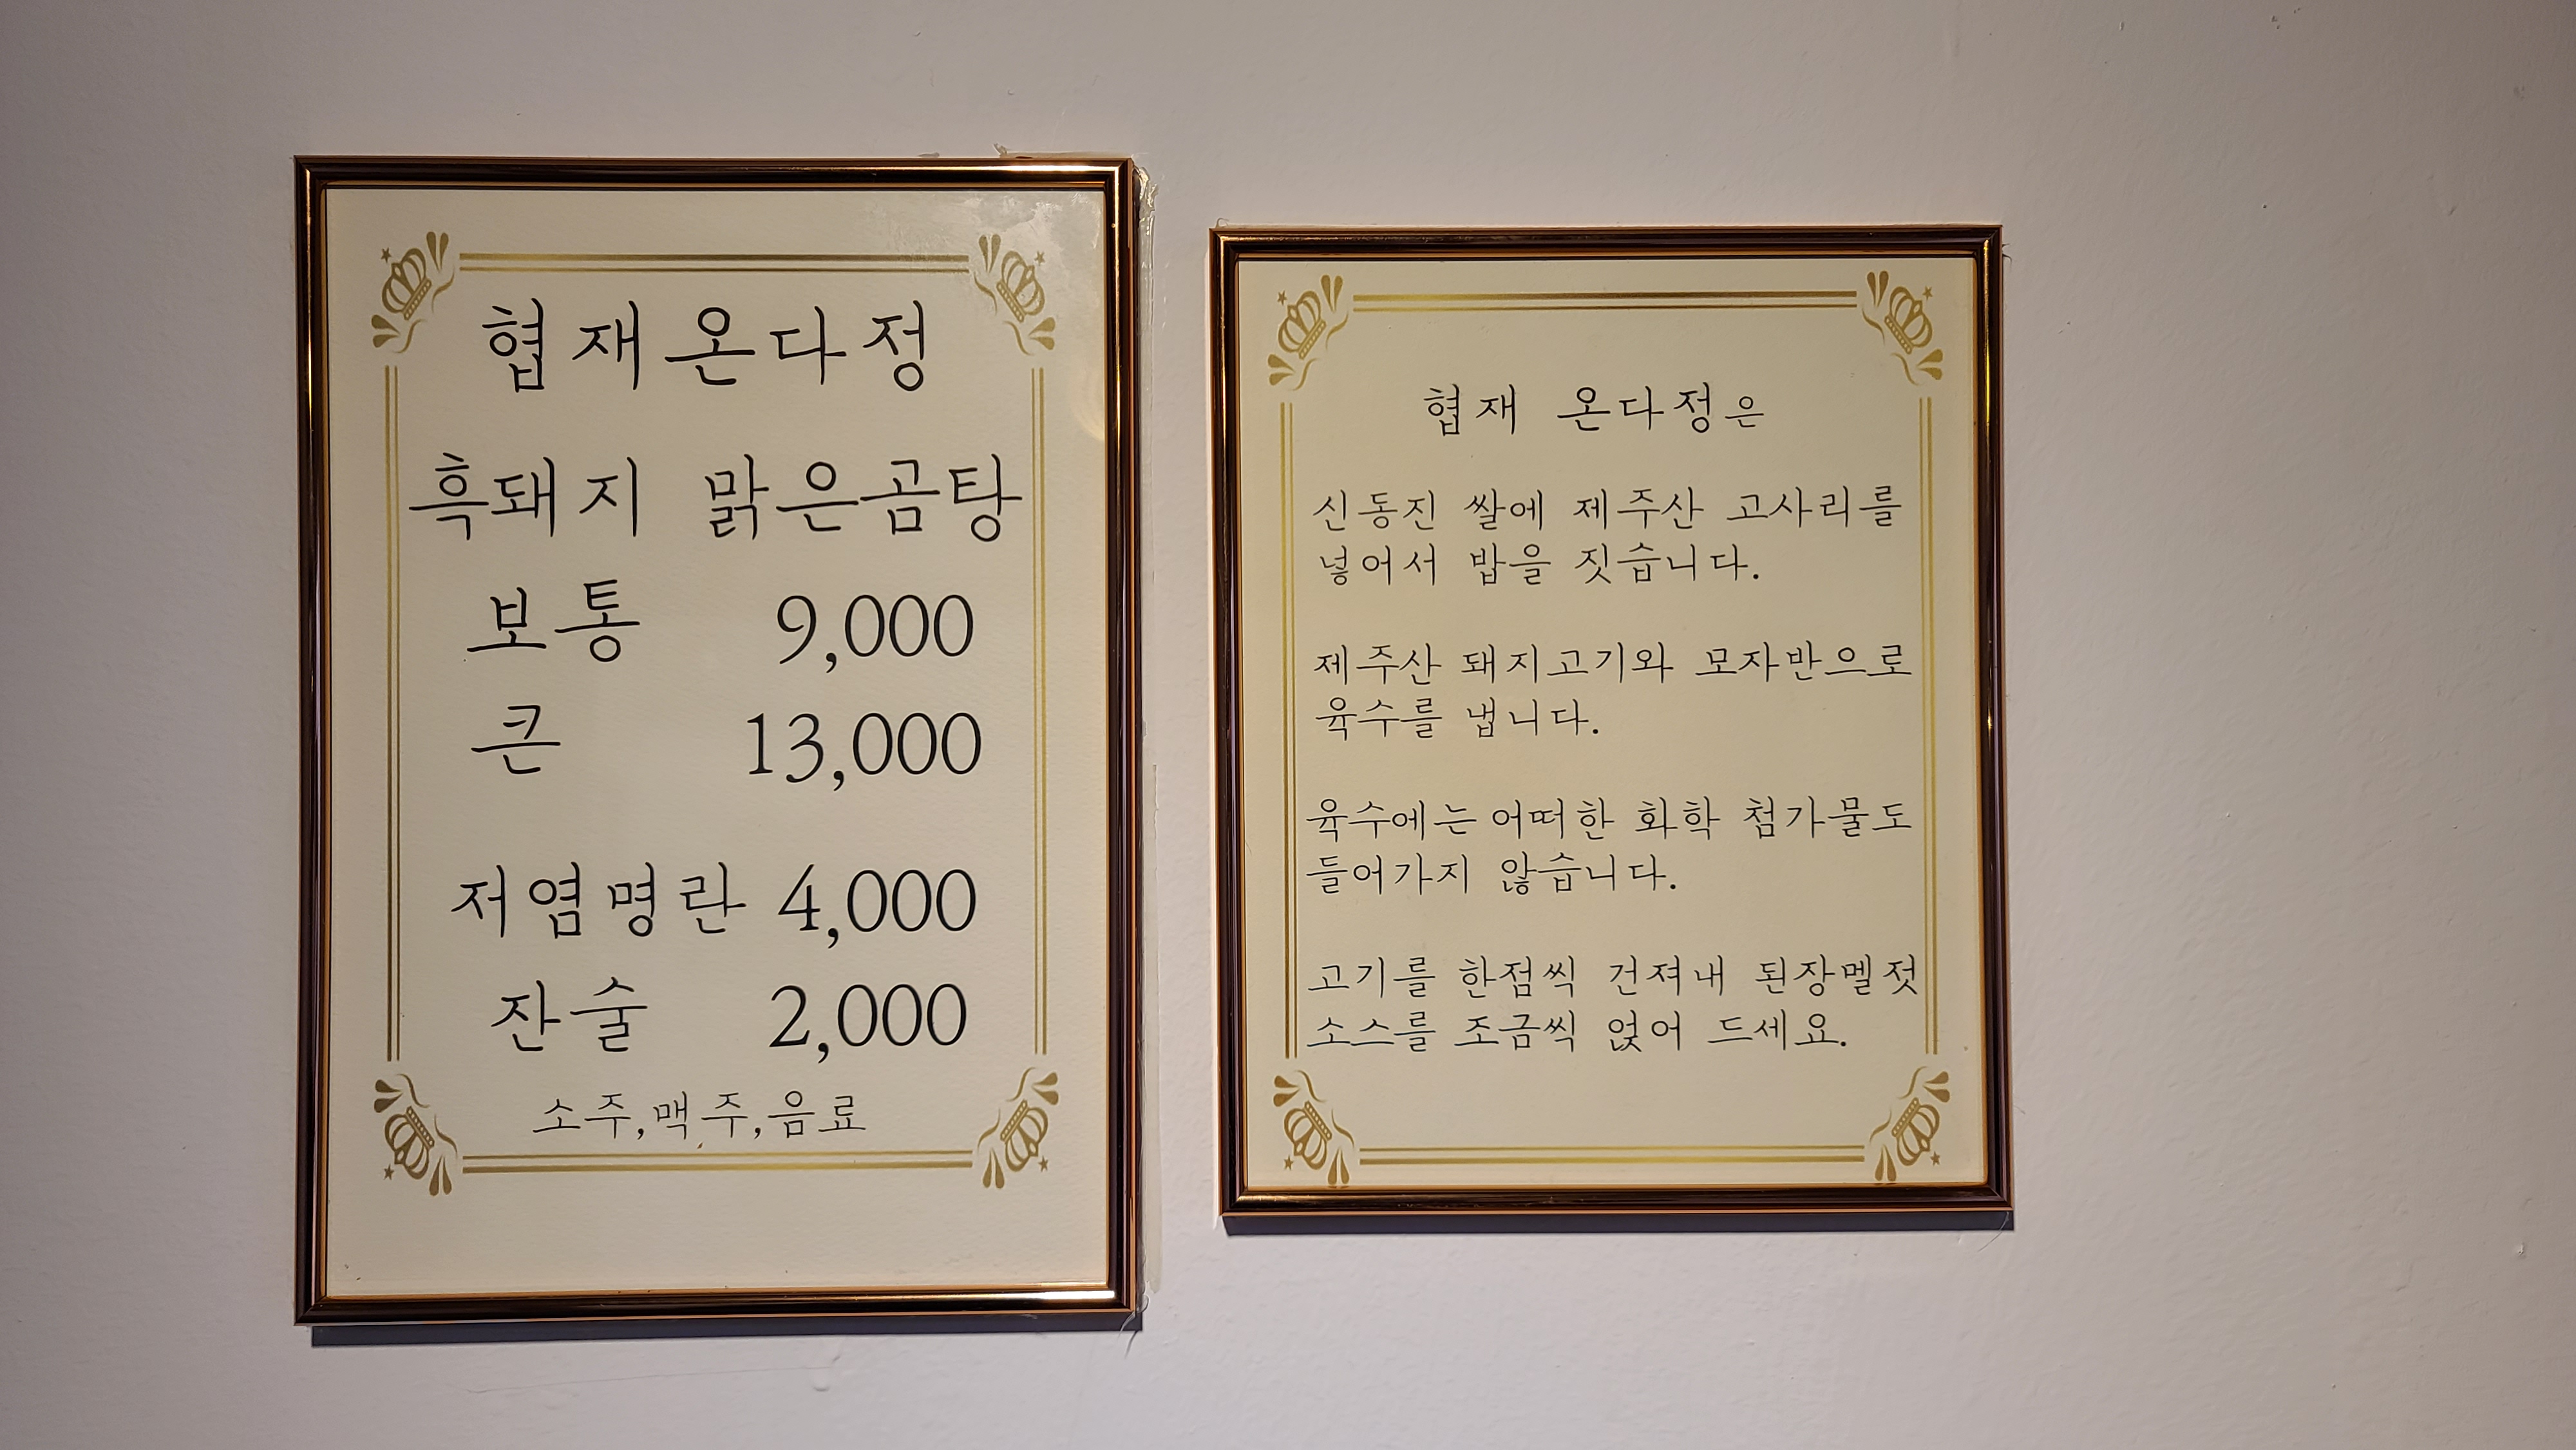 협재온다정
흑돼지 맑은곰탕
보통 9,000
큰 13,000
저염명란 4,000
잔술 2,000
소주,맥주,음료
협재 온다정은
신동진 쌀에 제주산 고사리를
넣어서 밥을 짓습니다.
제주산 돼지고기와 모자반으로
육수를 냅니다.
육수에는 어떠한 화학 첨가물도
들어가지 않습니다.
고기를 한점씩 건져내 된장멜젓
소스를 조금씩 얹어 드세요.